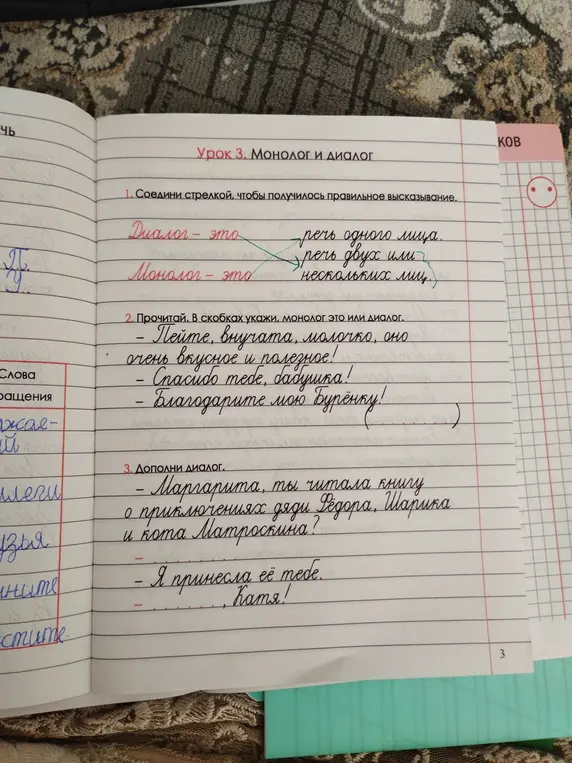 ЧЬ
КОВ
Урок 3. Монолог и диалог
1. Соедини стрелкой, чтобы получилось правильное высказывание.
Диалог – это речь одного лица.
речь двух или
Монолог – это нескольких лиц.
2. Прочитай. В скобках укажи, монолог это или диалог.
– Пейте, внучата, молочко, оно
очень вкусное и полезное!
– Спасибо тебе, бабушка!
– Благодарите мою Бурёнку!
( )
3. Дополни диалог.
– Маргарита, ты читала книгу
о приключениях дяди Фёдора, Шарика
и кота Матроскина?
– . . . . . . . . .
– Я принесла её тебе.
– . . . . . . . . , Катя!
3
П.
У.
Слова
ращения
ажае-
ый
ллеги
узья
ините
стите